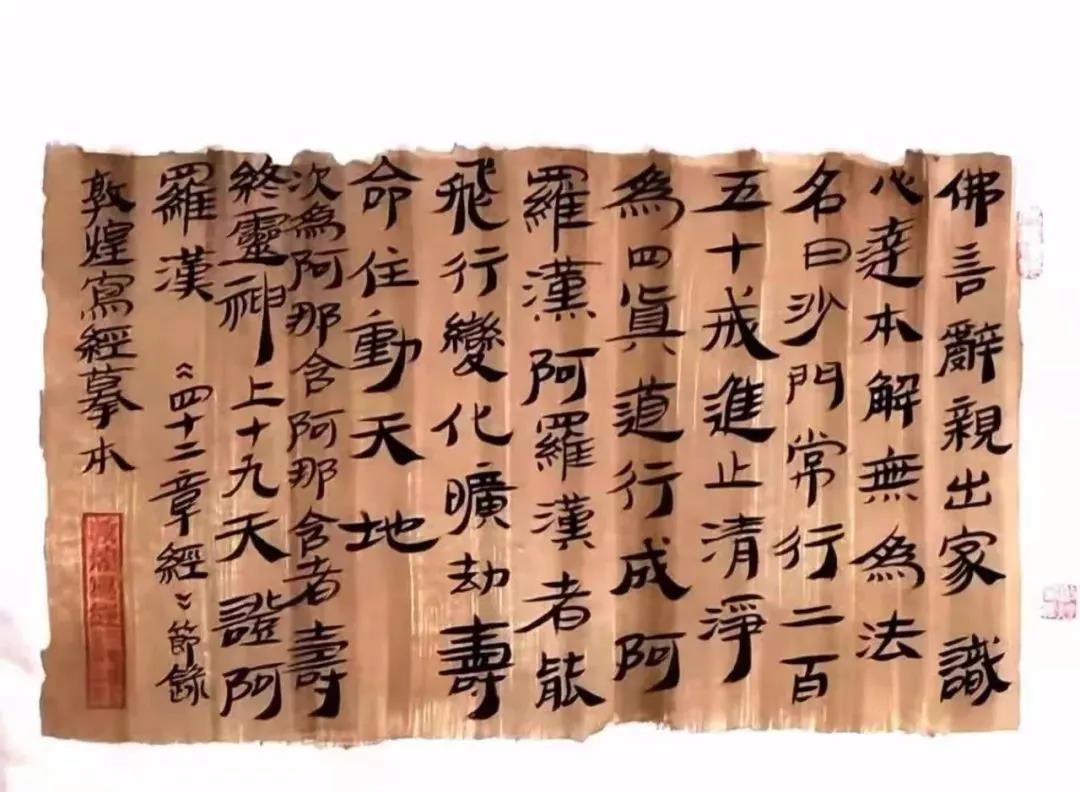 佛言辭親出家識
心達本解無為法
名曰沙門常行二百
五十戒進止清淨
為四真道行成阿
羅漢阿羅漢者能
飛行變化曠劫壽
命住動天地
次為阿那含阿那含者壽
終靈神上十九天證阿
羅漢 《四十二章經》節錄
敦煌寫經摹本